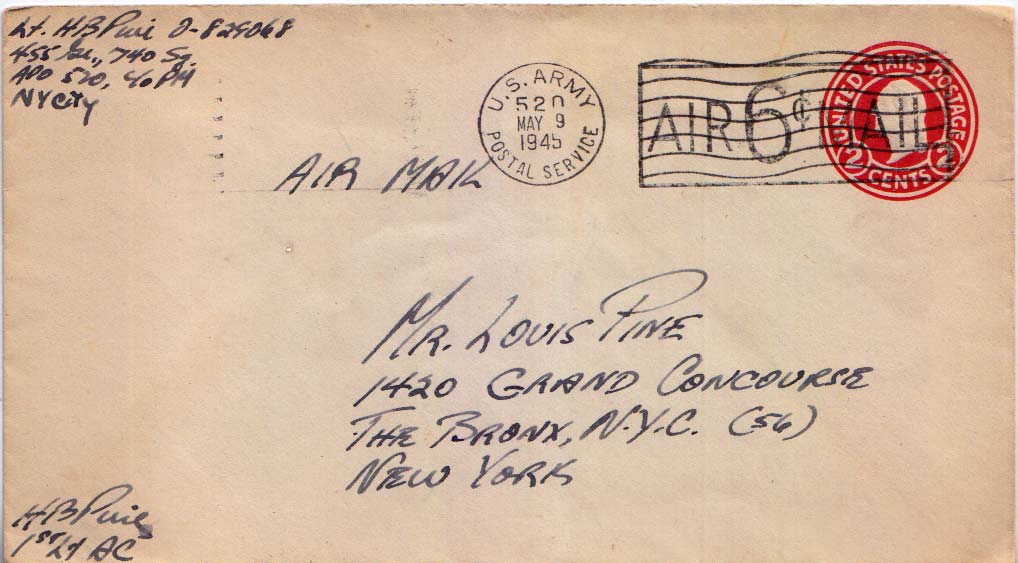 Lt. HB Pine O-829068
455 Gp., 740 Sq.
APO 520, % PM
NY City
U.S. ARMY
520
MAY 9
1945
POSTAL SERVICE
AIR 6¢ MAIL
UNITED STATES POSTAGE
2 CENTS 2
AIR MAIL
Mr. Louis Pine
1420 Grand Concourse
The Bronx, N.Y.C. (56)
New York
HB Pine
1st Lt AC